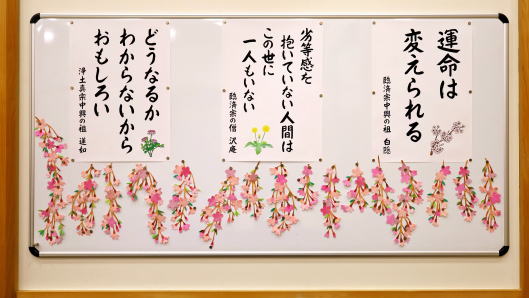 運命は
変えられる
臨済宗中興の祖 白隠
劣等感を
抱いていない人間は
この世に
一人もいない
臨済宗の僧 沢庵
どうなるか
わからないから
おもしろい
浄土真宗中興の祖 蓮如